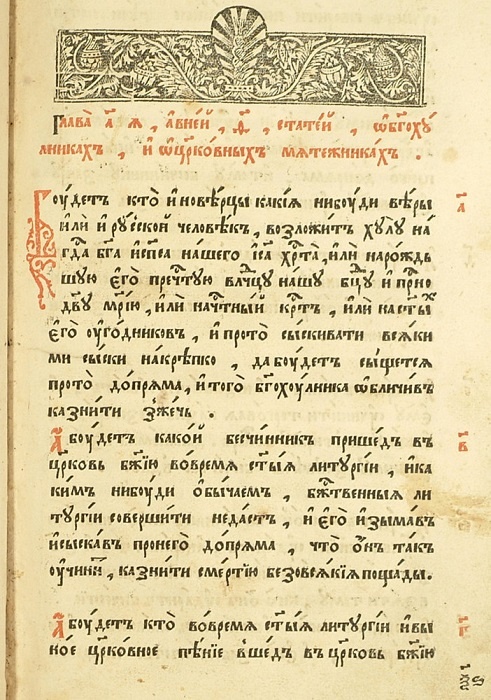 Глава̀ а҃ я , авне́й , ѳ҃ , стате́й , ѡбг҃охꙋ́
лникахъ , и ѡцр҃ковныхъ мѧте́жникахъ .
Бꙋ́детъ кто̀ и҆нове́рцы какі́ѧ нибꙋди ве́ры
и҆лѝ и҆ рꙋ́сской человѣ́къ , возложи́тъ хꙋлꙋ̀ на́
гдⷭ҇а бг҃а и҆сп҃са на́шего і҆с҃а хрⷭ҇та̀ , и҆лѝ наро́ждь
шꙋю є҆го̀ пречⷭ҇тꙋю влⷣчцꙋ на́шꙋ бцⷣꙋ и҆ прⷭ҇но
дв҃ꙋ мр҃і́ю , и҆лѝ начⷭ҇тны́й крⷭ҇тъ , и҆лѝ на ст҃ы́хъ
є҆го̀ ᲂу҆го́дниковъ , и҆ прото̀ сы́скивати всѧ́ки
ми сы́ски накрѣ́пко , да бꙋ́детъ сы́щетсѧ
прото̀ допрѧ́ма , и҆ того̀ бг҃охꙋ́лника ѡ҆бличи́въ
казни́ти зже́чь .
А҆ бꙋ́детъ како́й бесчи́нникъ прише́дъ въ
цр҃ковь бж҃ію во́времѧ ст҃ы́ѧ литꙋргі́и , и҆ ка
ки́мъ нибꙋди ѻ҆бы́чаемъ , бжⷭ҇твенныѧ ли
тꙋргі́и соверши́ти неда́стъ , и҆ є҆го̀ и҆зыма́въ
и҆ сыска́въ про него̀ допрѧ́ма , что̀ ѻ҆́нъ та́къ
ᲂу҆чини́тъ , казни́ти сме́ртїю безовсѧ́кїѧ поща́ды .
А҆ бꙋ́детъ кто̀ во́времѧ ст҃ы́ѧ литꙋргі́и и҆ вы
но́е цр҃ко́вное пѣ́нїе вше́дъ въ цр҃ковь бж҃ію
а҃
в҃
г҃